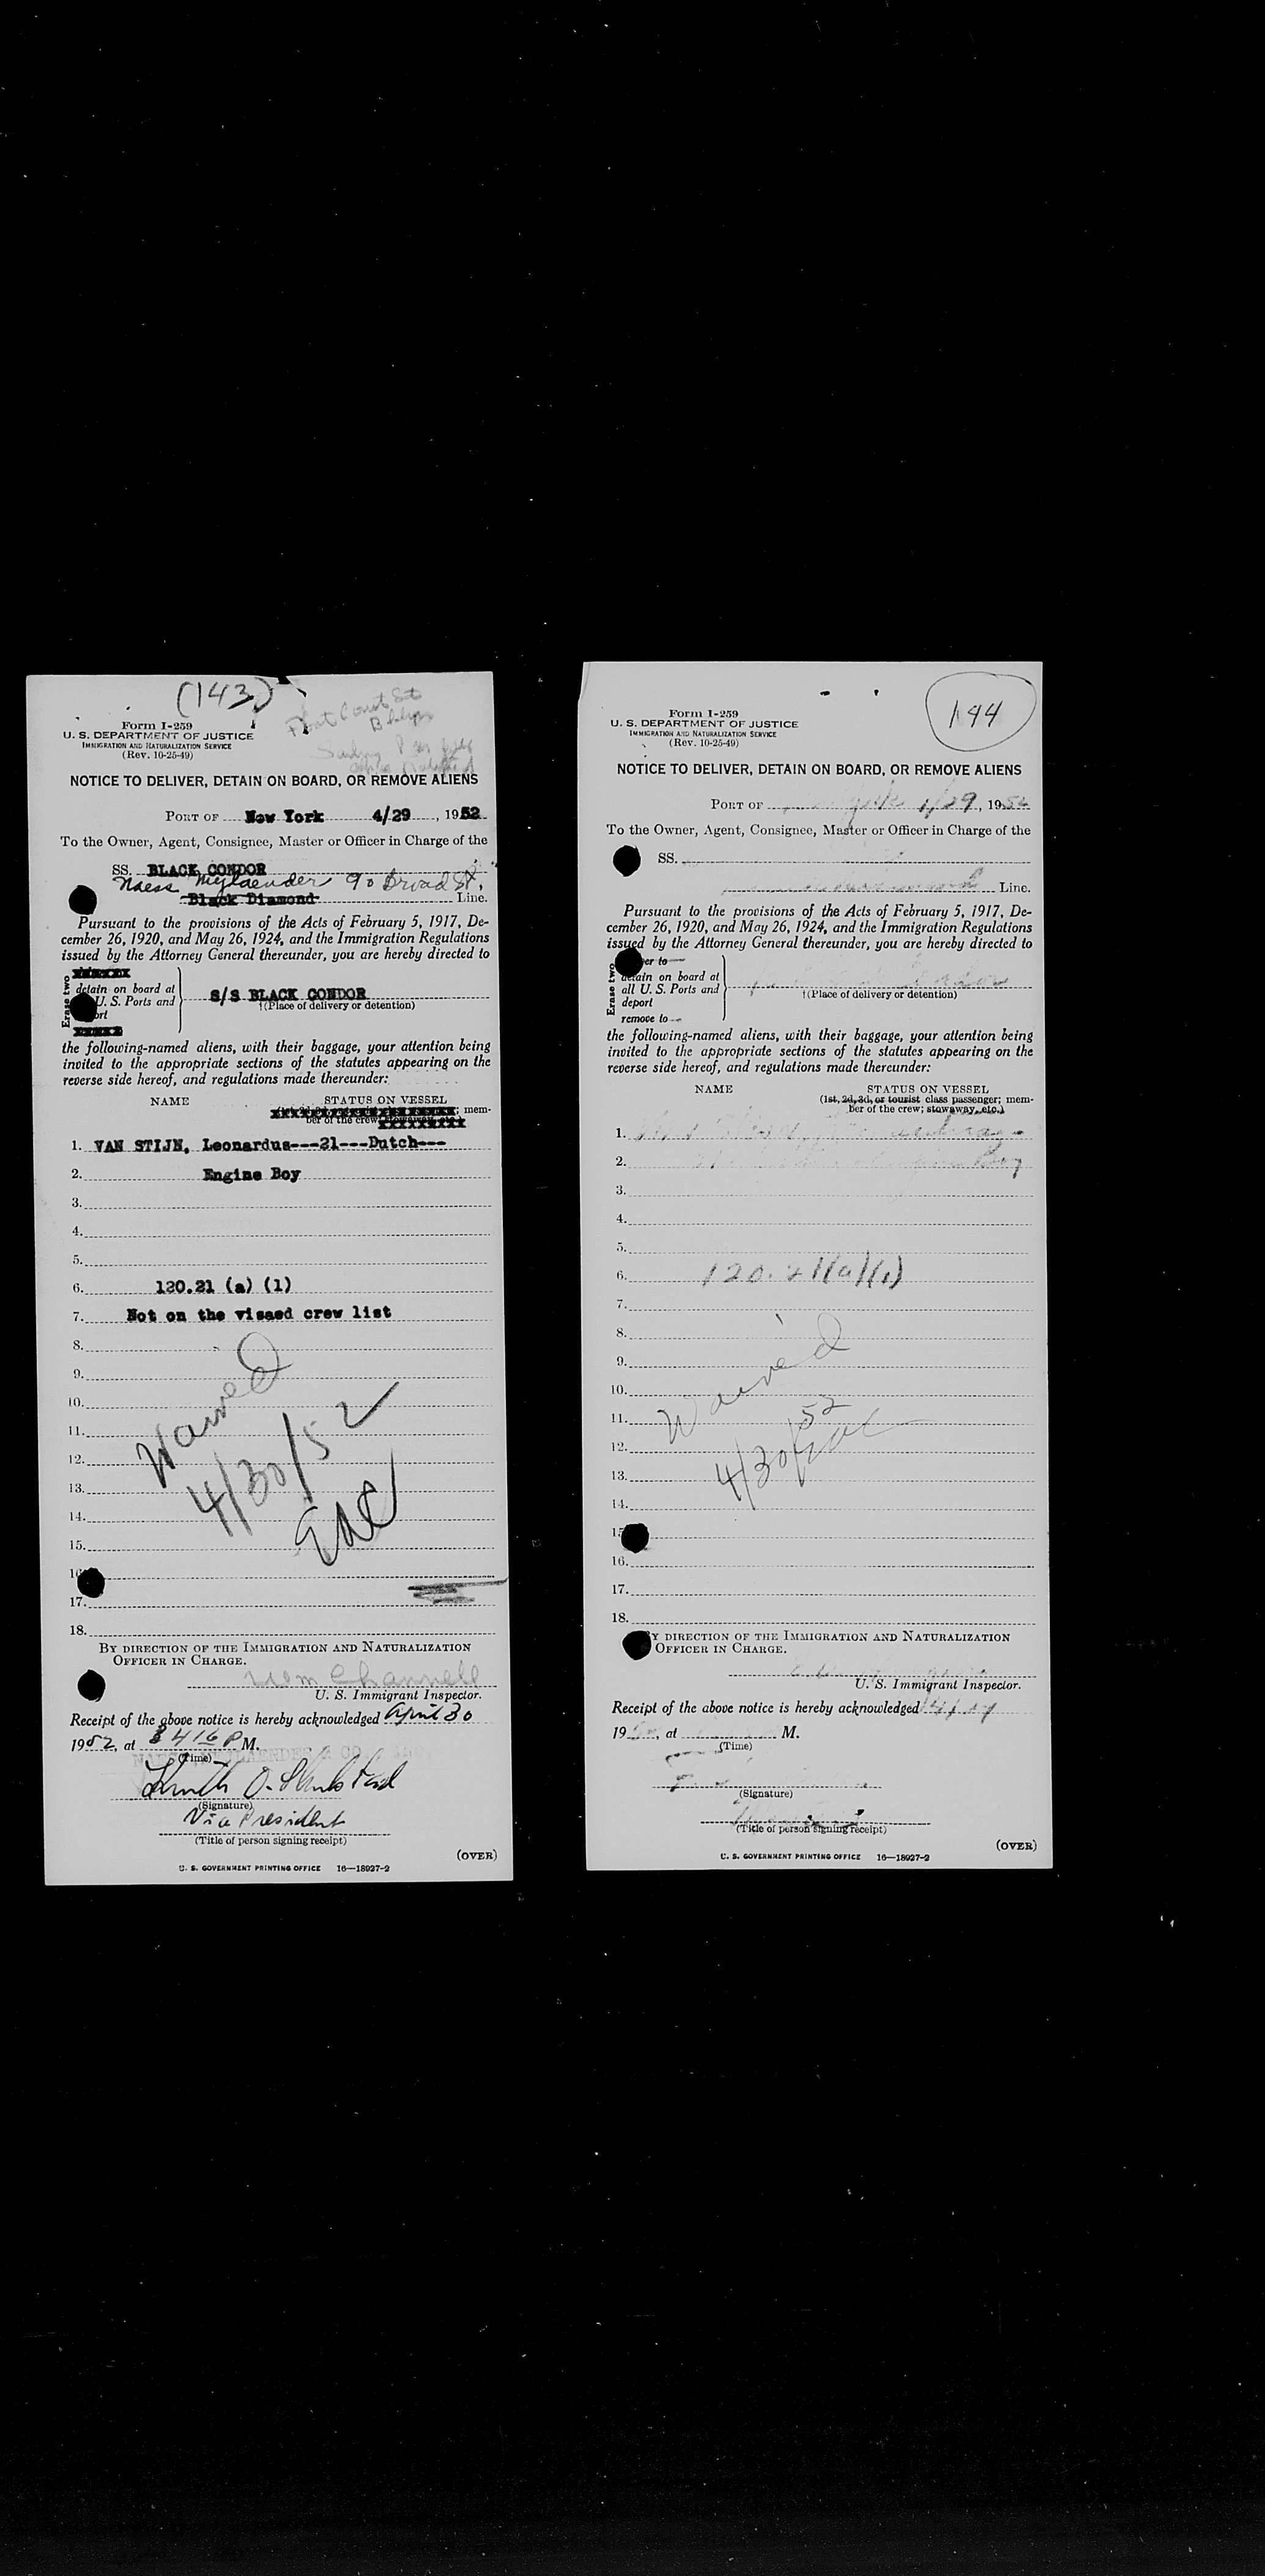 (143)
Form I-259
U. S. DEPARTMENT OF JUSTICE
IMMIGRATION AND NATURALIZATION SERVICE
(Rev. 10-25-49)
NOTICE TO DELIVER, DETAIN ON BOARD, OR REMOVE ALIENS
PORT OF New York 4/29, 1952
To the Owner, Agent, Consignee, Master or Officer in Charge of the
SS. BLACK CONDOR
Naess Mylaender 90 Broad St.
Black Diamond Line.
Pursuant to the provisions of the Acts of February 5, 1917, De-
cember 26, 1920, and May 26, 1924, and the Immigration Regulations
issued by the Attorney General thereunder, you are hereby directed to
Erase two
detain on board at
U. S. Ports and
S/S BLACK CONDOR
†(Place of delivery or detention)
the following-named aliens, with their baggage, your attention being
invited to the appropriate sections of the statutes appearing on the
reverse side hereof, and regulations made thereunder:
NAME STATUS ON VESSEL
; mem-
ber of the crew
1. VAN STIJN, Leonardus---21---Dutch---
2. Engine Boy
3.
4.
5.
6. 120.21 (a) (1)
7. Not on the visaed crew list
8.
9.
10.
11.
12.
13.
14.
15.
16
17.
18.
Waived
4/30/52
BY DIRECTION OF THE IMMIGRATION AND NATURALIZATION
OFFICER IN CHARGE.
Wm Channell
U. S. Immigrant Inspector.
Receipt of the above notice is hereby acknowledged April 30
1952, at 416 P M.
(Time)
(Signature)
Vice President
(Title of person signing receipt)
(OVER)
U. S. GOVERNMENT PRINTING OFFICE 16—18927-2
144
Form I-259
U. S. DEPARTMENT OF JUSTICE
IMMIGRATION AND NATURALIZATION SERVICE
(Rev. 10-25-49)
NOTICE TO DELIVER, DETAIN ON BOARD, OR REMOVE ALIENS
PORT OF York 4/29, 1952
To the Owner, Agent, Consignee, Master or Officer in Charge of the
SS.
Line.
Pursuant to the provisions of the Acts of February 5, 1917, De-
cember 26, 1920, and May 26, 1924, and the Immigration Regulations
issued by the Attorney General thereunder, you are hereby directed to
Erase two
er to
detain on board at
all U. S. Ports and
deport
remove to
†(Place of delivery or detention)
the following-named aliens, with their baggage, your attention being
invited to the appropriate sections of the statutes appearing on the
reverse side hereof, and regulations made thereunder:
NAME STATUS ON VESSEL
(1st, 2d, 3d, or tourist class passenger; mem-
ber of the crew; stowaway, etc.)
1.
2. Boy
3.
4.
5.
6. 120.21(a)(1)
7.
8.
9.
10.
11.
12.
13.
14.
15
16.
17.
18.
Waived
4/30/52
BY DIRECTION OF THE IMMIGRATION AND NATURALIZATION
OFFICER IN CHARGE.
U. S. Immigrant Inspector.
Receipt of the above notice is hereby acknowledged
19 , at M.
(Time)
(Signature)
(Title of person signing receipt)
(OVER)
U. S. GOVERNMENT PRINTING OFFICE 16—18927-2